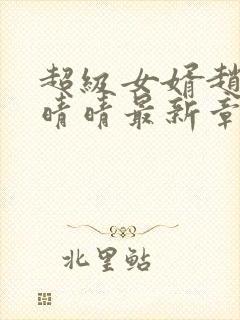 超级女婿赵
晴晴最新章
北里鲇